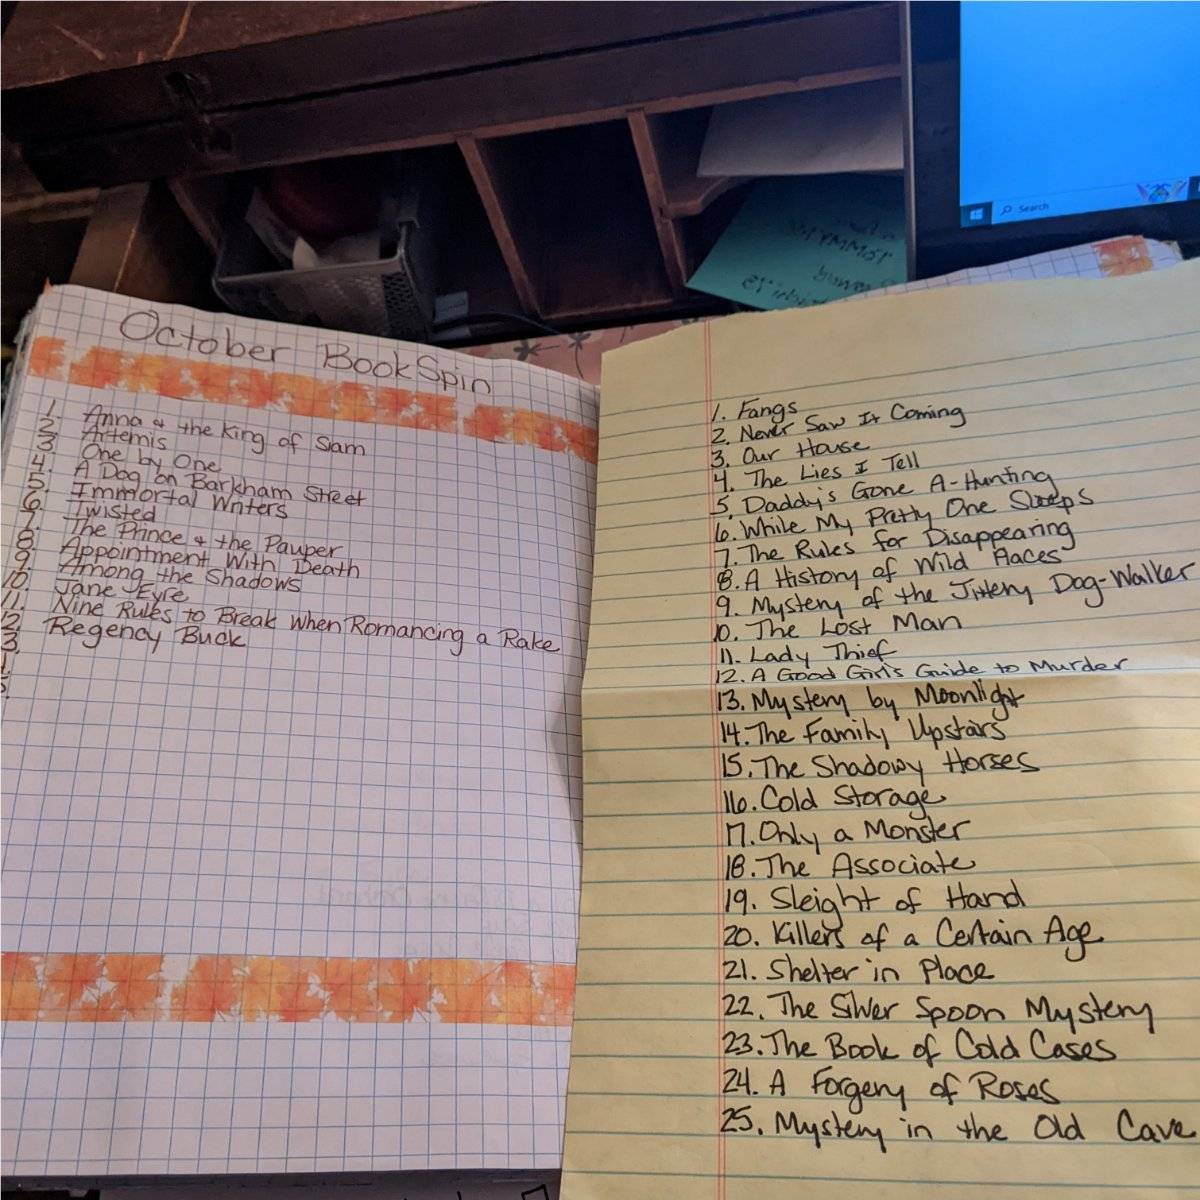 October BookSpin
1. Anna & the King of Siam
2. Artemis
3. One by One
4. A Dog on Barkham Street
5. Immortal Writers
6. Twisted
7. The Prince & the Pauper
8. Appointment With Death
9. Among the Shadows
10. Jane Eyre
11. Nine Rules to Break When Romancing a Rake
12. Regency Buck
1. Fangs
2. Never Saw It Coming
3. Our House
4. The Lies I Tell
5. Daddy's Gone A-Hunting
6. While My Pretty One Sleeps
7. The Rules for Disappearing
8. A History of Wild Places
9. Mystery of the Jittery Dog-Walker
10. The Lost Man
11. Lady Thief
12. A Good Girl's Guide to Murder
13. Mystery by Moonlight
14. The Family Upstairs
15. The Shadowy Horses
16. Cold Storage
17. Only a Monster
18. The Associate
19. Sleight of Hand
20. Killers of a Certain Age
21. Shelter in Place
22. The Silver Spoon Mystery
23. The Book of Cold Cases
24. A Forgery of Roses
25. Mystery in the Old Cave
Search